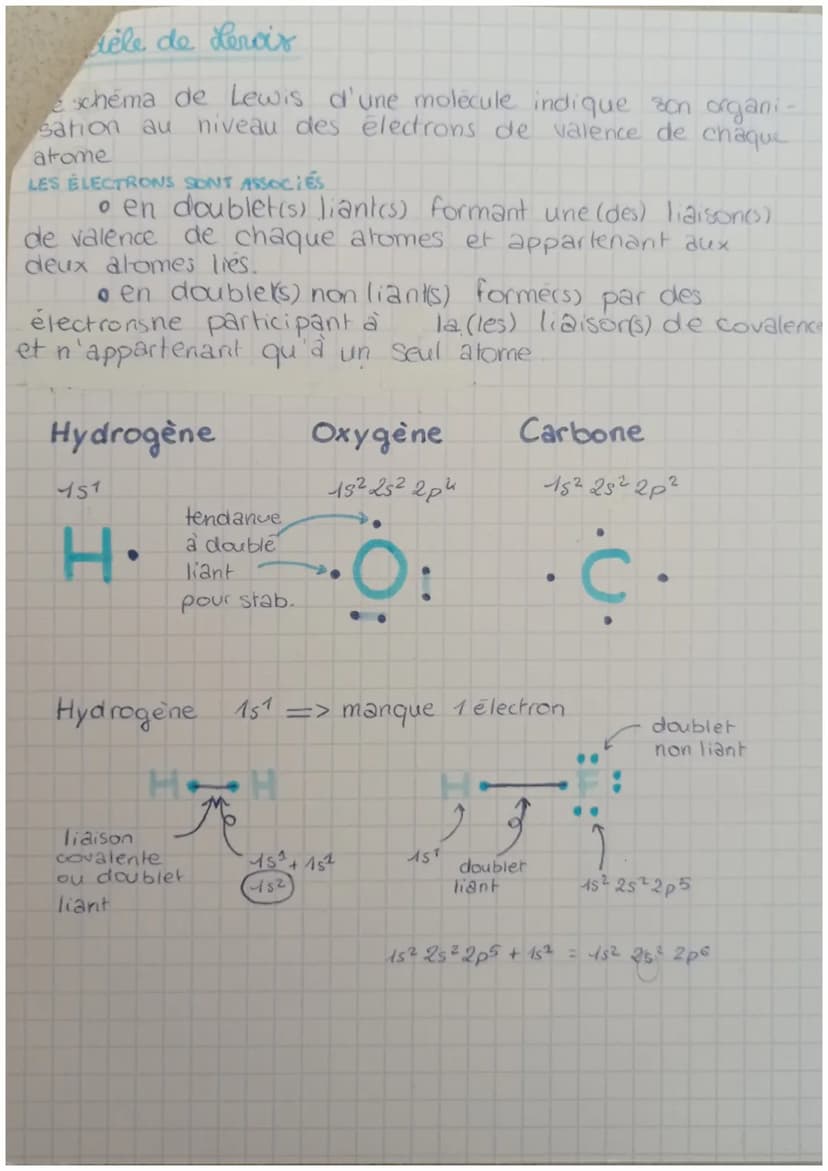 dèle de Lewis
e schéma de Lewis d'une molécule indique son organi-
sation au niveau des électrons de valence de chaque
atome
LES ÉLECTRONS SONT ASSOCIÉS
en doublet(s) liant(s) formant une (des) liaison(s)
de valence de chaque atomes et appartenant aux
deux atomes liés.
en doublet(s) non liant(s) formé(s) par des
électronsne participant à la (les) liaison(s) de covalence
et n'appartenant qu'à un seul atome
Hydrogène Oxygène Carbone
1s¹ 1s² 2s² 2p⁴ 1s² 2s² 2p²
tendance
à double
liant
pour stab.
H· O C
Hydrogène 1s¹ => manque 1 électron
doublet
non liant
H H H F
liaison
covalente
ou doublet
liant
1s¹ + 1s¹
1s²
1s¹
doublet
liant
1s² 2s² 2p⁵
1s² 2s² 2p⁵ + 1s¹ = 1s² 2s² 2p⁶